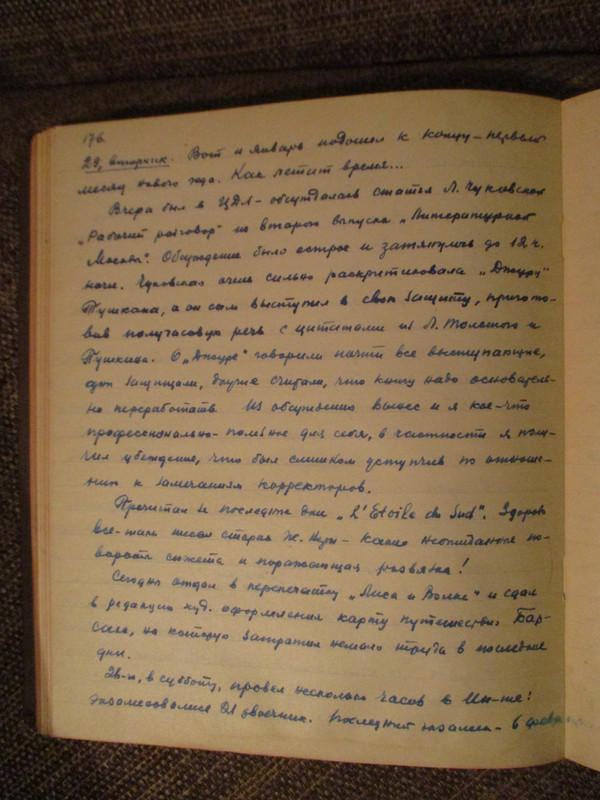 176.
29, вторник. Вот и январь подошел к концу – первый
месяц нового года. Как летит время...
Вчера был в ЦДЛ – обсуждалась статья Л. Чуковской
„Рабочий разговор" из второго выпуска „Литературной
Москвы". Обсуждение было острое и затянулось до 12 ч.
ночи. Чуковская очень сильно раскритиковала „Джуру"
Тушкана, а он сам выступил в свою защиту, пригото-
вив получасовую речь с цитатами из Л. Толстого и
Пушкина. О „Джуре" говорили почти все выступающие,
одни защищали, другие считали, что книгу надо основатель-
но переработать. Из обсуждения вынес и я кое-что
профессионально-полезное для себя, в частности я полу-
чил убеждение, что был слишком уступчив по отноше-
нию к замечаниям корректоров.
Прочитал в последние дни „L'Etoile du Sud". Здорово
все-таки писал старик Ж. Верн – какие неожиданные по-
вороты сюжета и поражающая развязка!
Сегодня отдал в перепечатку „Лиса и Волка" и сдал
в редакцию худ. оформления карту путешествия Бар-
сака, на которую затратил немало труда в последние
дни.
26-го, в субботу, провел несколько часов в Ин-те:
экзаменовался 21 двоечник. Последний экзамен – 6 февр